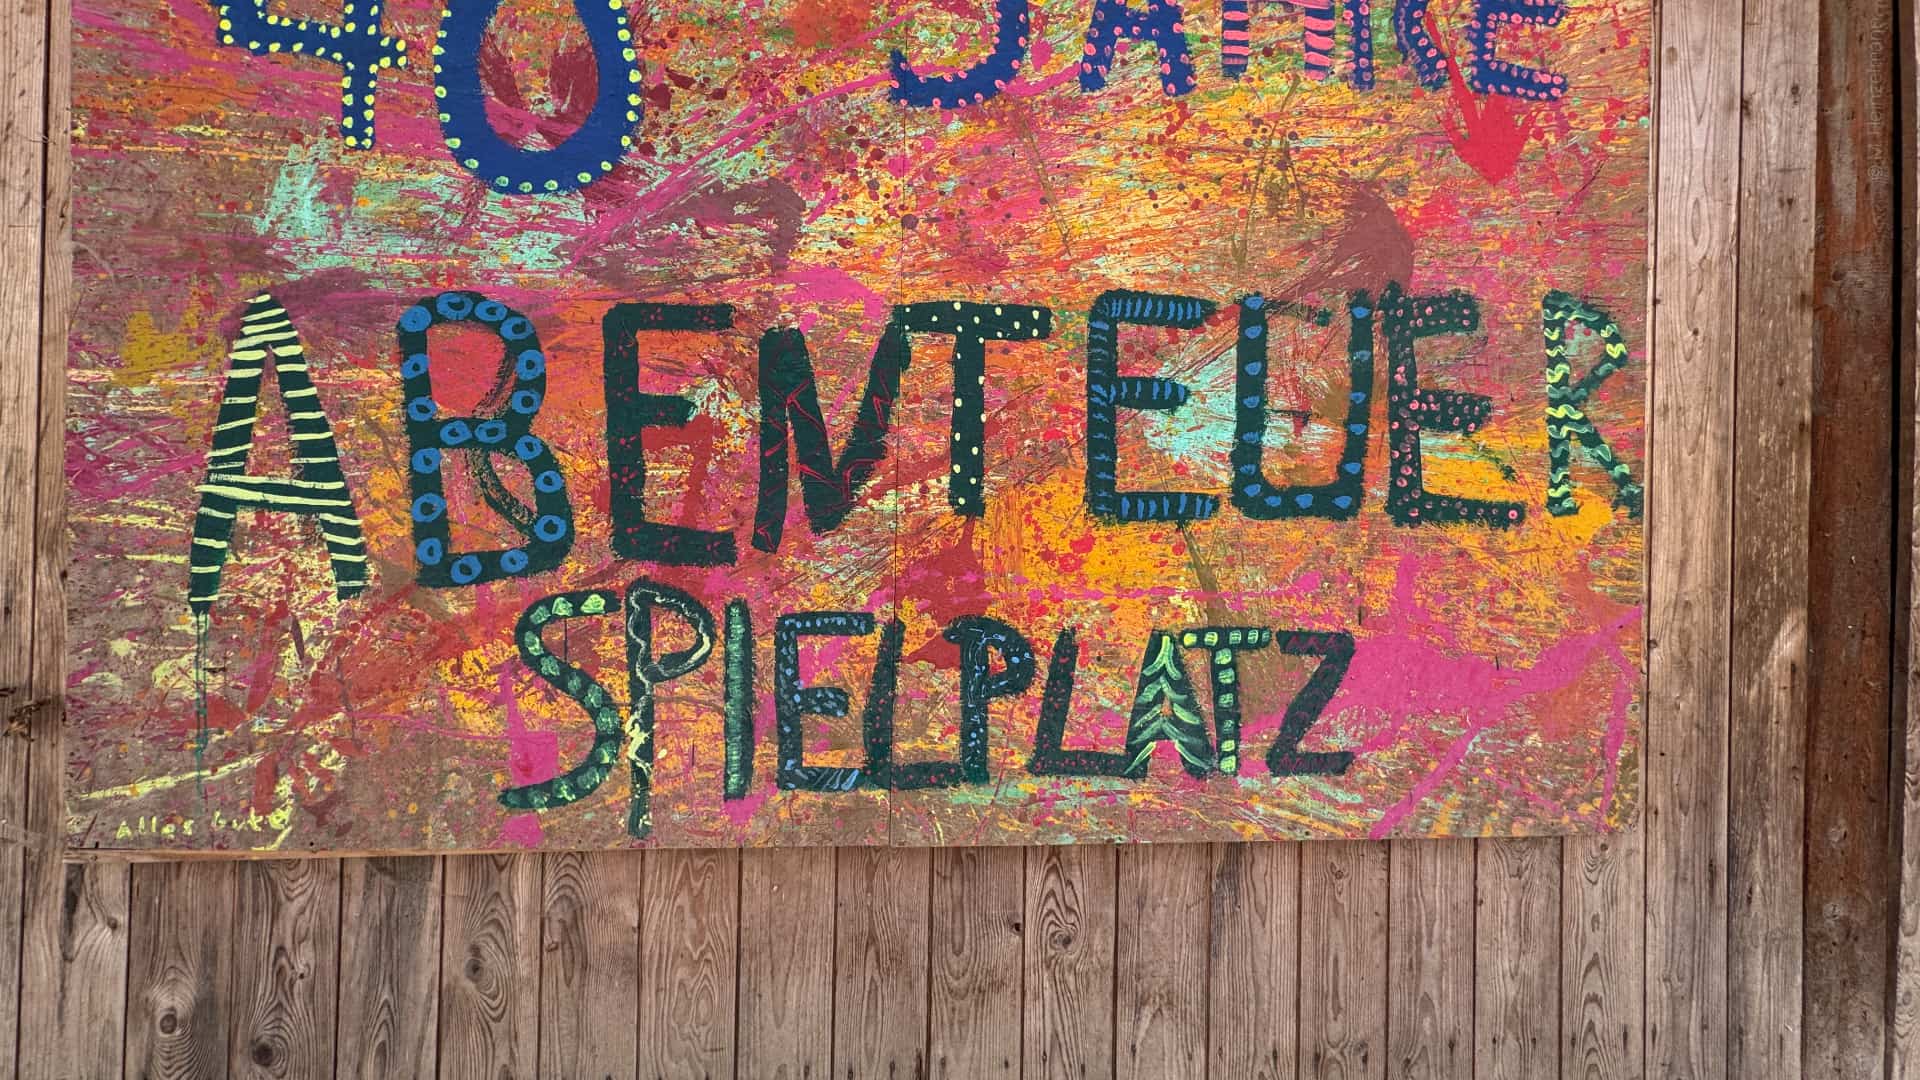 40 JAHRE
ABENTEUER
SPIELPLATZ
Alles gute
© M. Heinzelmann